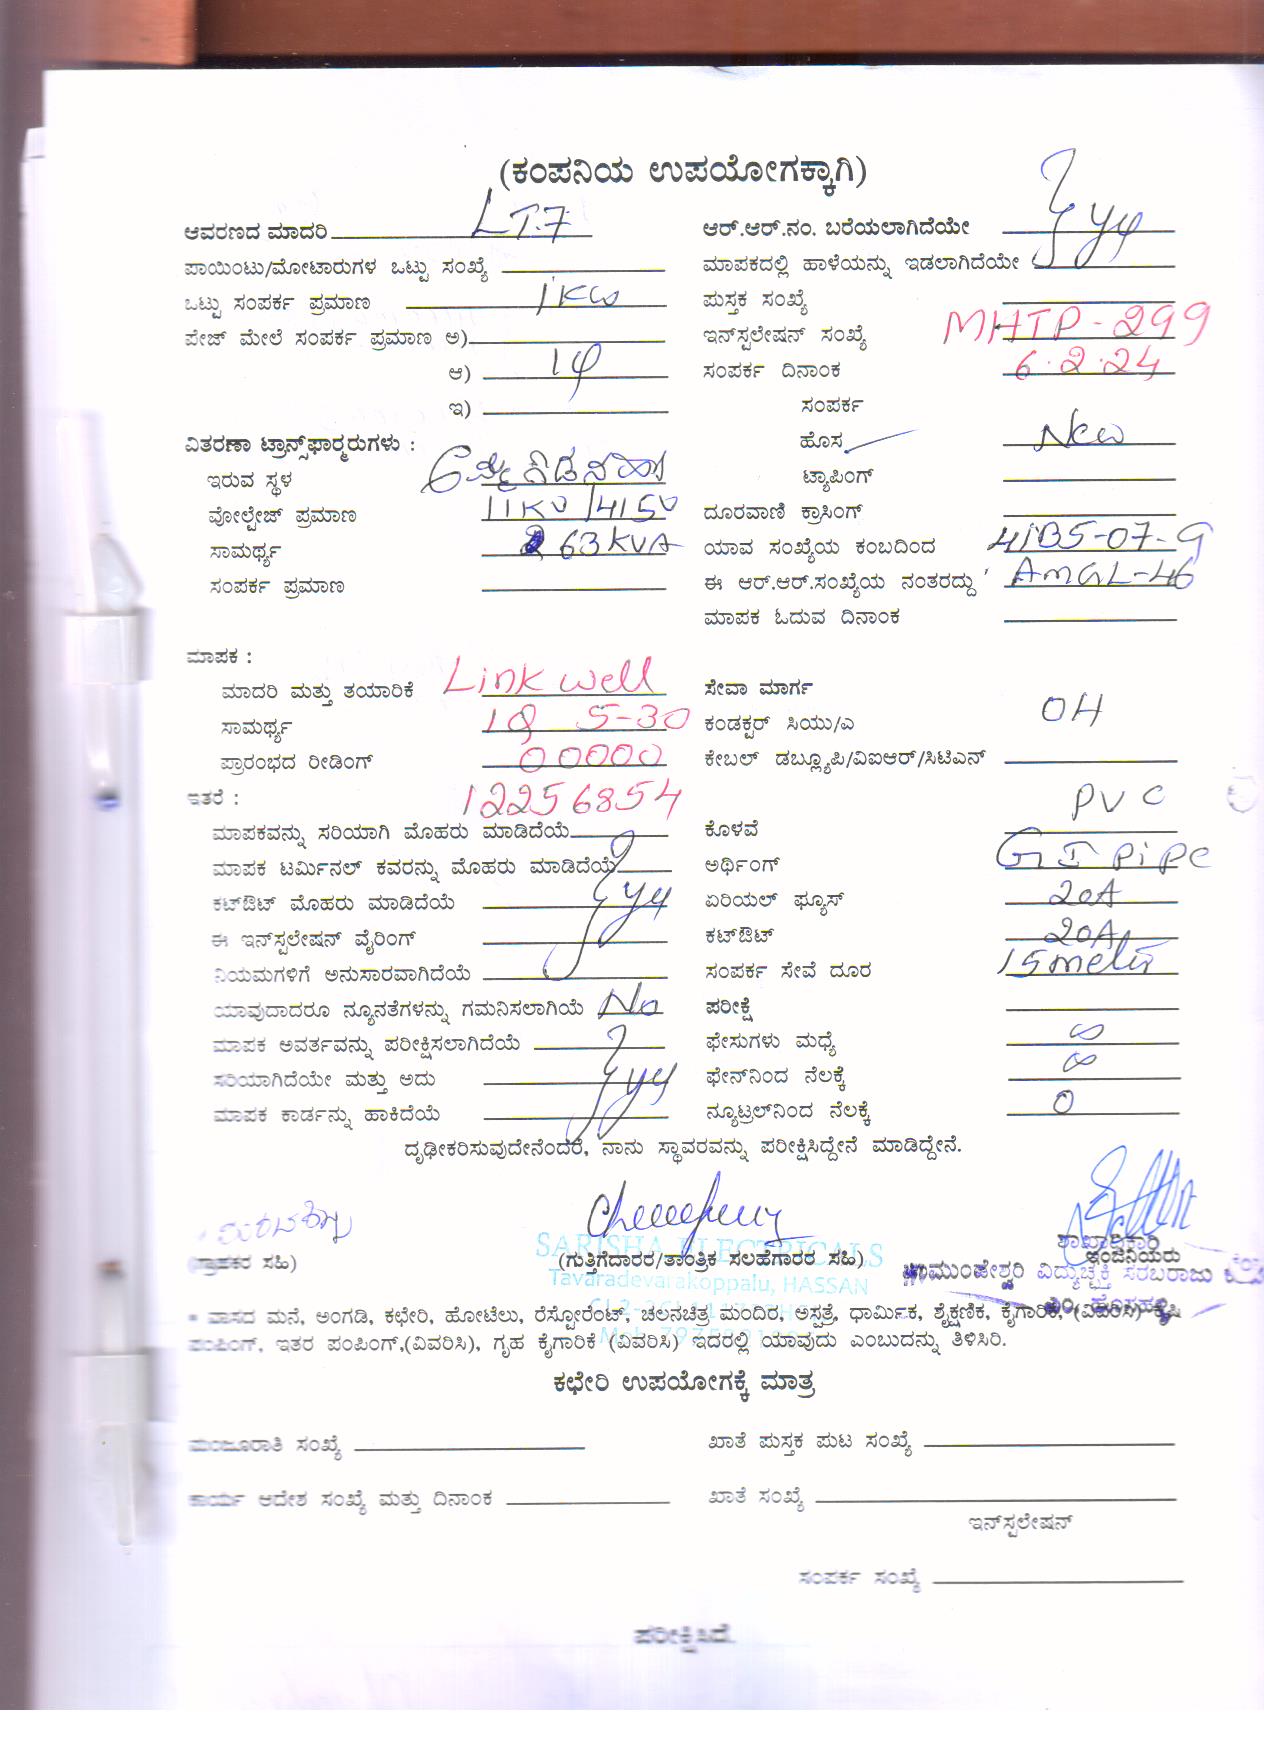 (ಕಂಪನಿಯ ಉಪಯೋಗಕ್ಕಾಗಿ)
ಆವರಣದ ಮಾದರಿ LT-7
ಆರ್.ಆರ್.ನಂ. ಬರೆಯಲಾಗಿದೆಯೇ
ಪಾಯಿಂಟು/ಮೋಟಾರುಗಳ ಒಟ್ಟು ಸಂಖ್ಯೆ
ಮಾಪಕದಲ್ಲಿ ಹಾಳೆಯನ್ನು ಇಡಲಾಗಿದೆಯೇ
ಒಟ್ಟು ಸಂಪರ್ಕ ಪ್ರಮಾಣ 1KW
ಪುಸ್ತಕ ಸಂಖ್ಯೆ
ಪೇಜ್ ಮೇಲೆ ಸಂಪರ್ಕ ಪ್ರಮಾಣ ಅ)
ಇನ್‌ಸ್ಟಲೇಷನ್ ಸಂಖ್ಯೆ MHTP-299
ಆ) 1φ
ಸಂಪರ್ಕ ದಿನಾಂಕ 6.2.24
ಇ)
ಸಂಪರ್ಕ
ವಿತರಣಾ ಟ್ರಾನ್ಸ್‌ಫಾರ್ಮರುಗಳು :
ಹೊಸ New
ಇರುವ ಸ್ಥಳ
ಟ್ಯಾಪಿಂಗ್
ವೋಲ್ಟೇಜ್ ಪ್ರಮಾಣ 11KV/415V
ದೂರವಾಣಿ ಕ್ರಾಸಿಂಗ್
ಸಾಮರ್ಥ್ಯ 63KVA
ಯಾವ ಸಂಖ್ಯೆಯ ಕಂಬದಿಂದ
ಸಂಪರ್ಕ ಪ್ರಮಾಣ
ಈ ಆರ್.ಆರ್.ಸಂಖ್ಯೆಯ ನಂತರದ್ದು AMGL-46
ಮಾಪಕ ಓದುವ ದಿನಾಂಕ
ಮಾಪಕ :
ಮಾದರಿ ಮತ್ತು ತಯಾರಿಕೆ Link well
ಸೇವಾ ಮಾರ್ಗ
ಸಾಮರ್ಥ್ಯ 1φ 5-30
ಕಂಡಕ್ಟರ್ ಸಿಯು/ಎ OH
ಪ್ರಾರಂಭದ ರೀಡಿಂಗ್ 00000
ಕೇಬಲ್ ಡಬ್ಲ್ಯೂಪಿ/ವಿಐಆರ್/ಸಿಟಿಎನ್
ಇತರೆ : 12256854
ಮಾಪಕವನ್ನು ಸರಿಯಾಗಿ ಮೊಹರು ಮಾಡಿದೆಯೆ
ಕೊಳವೆ PVC
ಮಾಪಕ ಟರ್ಮಿನಲ್ ಕವರನ್ನು ಮೊಹರು ಮಾಡಿದೆಯೆ
ಅರ್ಥಿಂಗ್ GI pipe
ಕಟ್‌ಔಟ್ ಮೊಹರು ಮಾಡಿದೆಯೆ
ಏರಿಯಲ್ ಫ್ಯೂಸ್ 20A
ಈ ಇನ್‌ಸ್ಟಲೇಷನ್ ವೈರಿಂಗ್
ಕಟ್‌ಔಟ್ 20A
ನಿಯಮಗಳಿಗೆ ಅನುಸಾರವಾಗಿದೆಯೆ
ಸಂಪರ್ಕ ಸೇವೆ ದೂರ 15 meter
ಯಾವುದಾದರೂ ನ್ಯೂನತೆಗಳನ್ನು ಗಮನಿಸಲಾಗಿಯೆ No
ಪರೀಕ್ಷೆ
ಮಾಪಕ ಅವರ್ತವನ್ನು ಪರೀಕ್ಷಿಸಲಾಗಿದೆಯೆ
ಫೇಸುಗಳು ಮಧ್ಯೆ ∞
ಸರಿಯಾಗಿದೆಯೇ ಮತ್ತು ಅದು
ಫೇಸ್‌ನಿಂದ ನೆಲಕ್ಕೆ ∞
ಮಾಪಕ ಕಾರ್ಡನ್ನು ಹಾಕಿದೆಯೆ
ನ್ಯೂಟ್ರಲ್‌ನಿಂದ ನೆಲಕ್ಕೆ 0
ದೃಢೀಕರಿಸುವುದೇನೆಂದರೆ, ನಾನು ಸ್ಥಾವರವನ್ನು ಪರೀಕ್ಷಿಸಿದ್ದೇನೆ ಮಾಡಿದ್ದೇನೆ.
ಶಾಖಾಧಿಕಾರಿ
SARISHA ELECTRICALS
(ಗ್ರಾಹಕರ ಸಹಿ)
(ಗುತ್ತಿಗೆದಾರರ/ತಾಂತ್ರಿಕ ಸಲಹೆಗಾರರ ಸಹಿ)
ಇಂಜಿನಿಯರು
ಚಾಮುಂಡೇಶ್ವರಿ ವಿದ್ಯುಚ್ಛಕ್ತಿ ಸರಬರಾಜು
Tavaradevarakoppalu, HASSAN
* ವಾಸದ ಮನೆ, ಅಂಗಡಿ, ಕಛೇರಿ, ಹೋಟೆಲು, ರೆಸ್ಟೋರೆಂಟ್, ಚಲನಚಿತ್ರ ಮಂದಿರ, ಅಸ್ಪತ್ರೆ, ಧಾರ್ಮಿಕ, ಶೈಕ್ಷಣಿಕ, ಕೈಗಾರಿಕೆ, (ವಿವರಿಸಿ) ಕೃಷಿ
ಪಂಪಿಂಗ್, ಇತರ ಪಂಪಿಂಗ್,(ವಿವರಿಸಿ), ಗೃಹ ಕೈಗಾರಿಕೆ (ವಿವರಿಸಿ) ಇದರಲ್ಲಿ ಯಾವುದು ಎಂಬುದನ್ನು ತಿಳಿಸಿರಿ.
ಕಛೇರಿ ಉಪಯೋಗಕ್ಕೆ ಮಾತ್ರ
ಮಂಜೂರಾತಿ ಸಂಖ್ಯೆ
ಖಾತೆ ಪುಸ್ತಕ ಪುಟ ಸಂಖ್ಯೆ
ಕಾರ್ಯ ಆದೇಶ ಸಂಖ್ಯೆ ಮತ್ತು ದಿನಾಂಕ
ಖಾತೆ ಸಂಖ್ಯೆ
ಇನ್‌ಸ್ಟಲೇಷನ್
ಸಂಪರ್ಕ ಸಂಖ್ಯೆ
ಪರೀಕ್ಷಿಸಿದೆ.